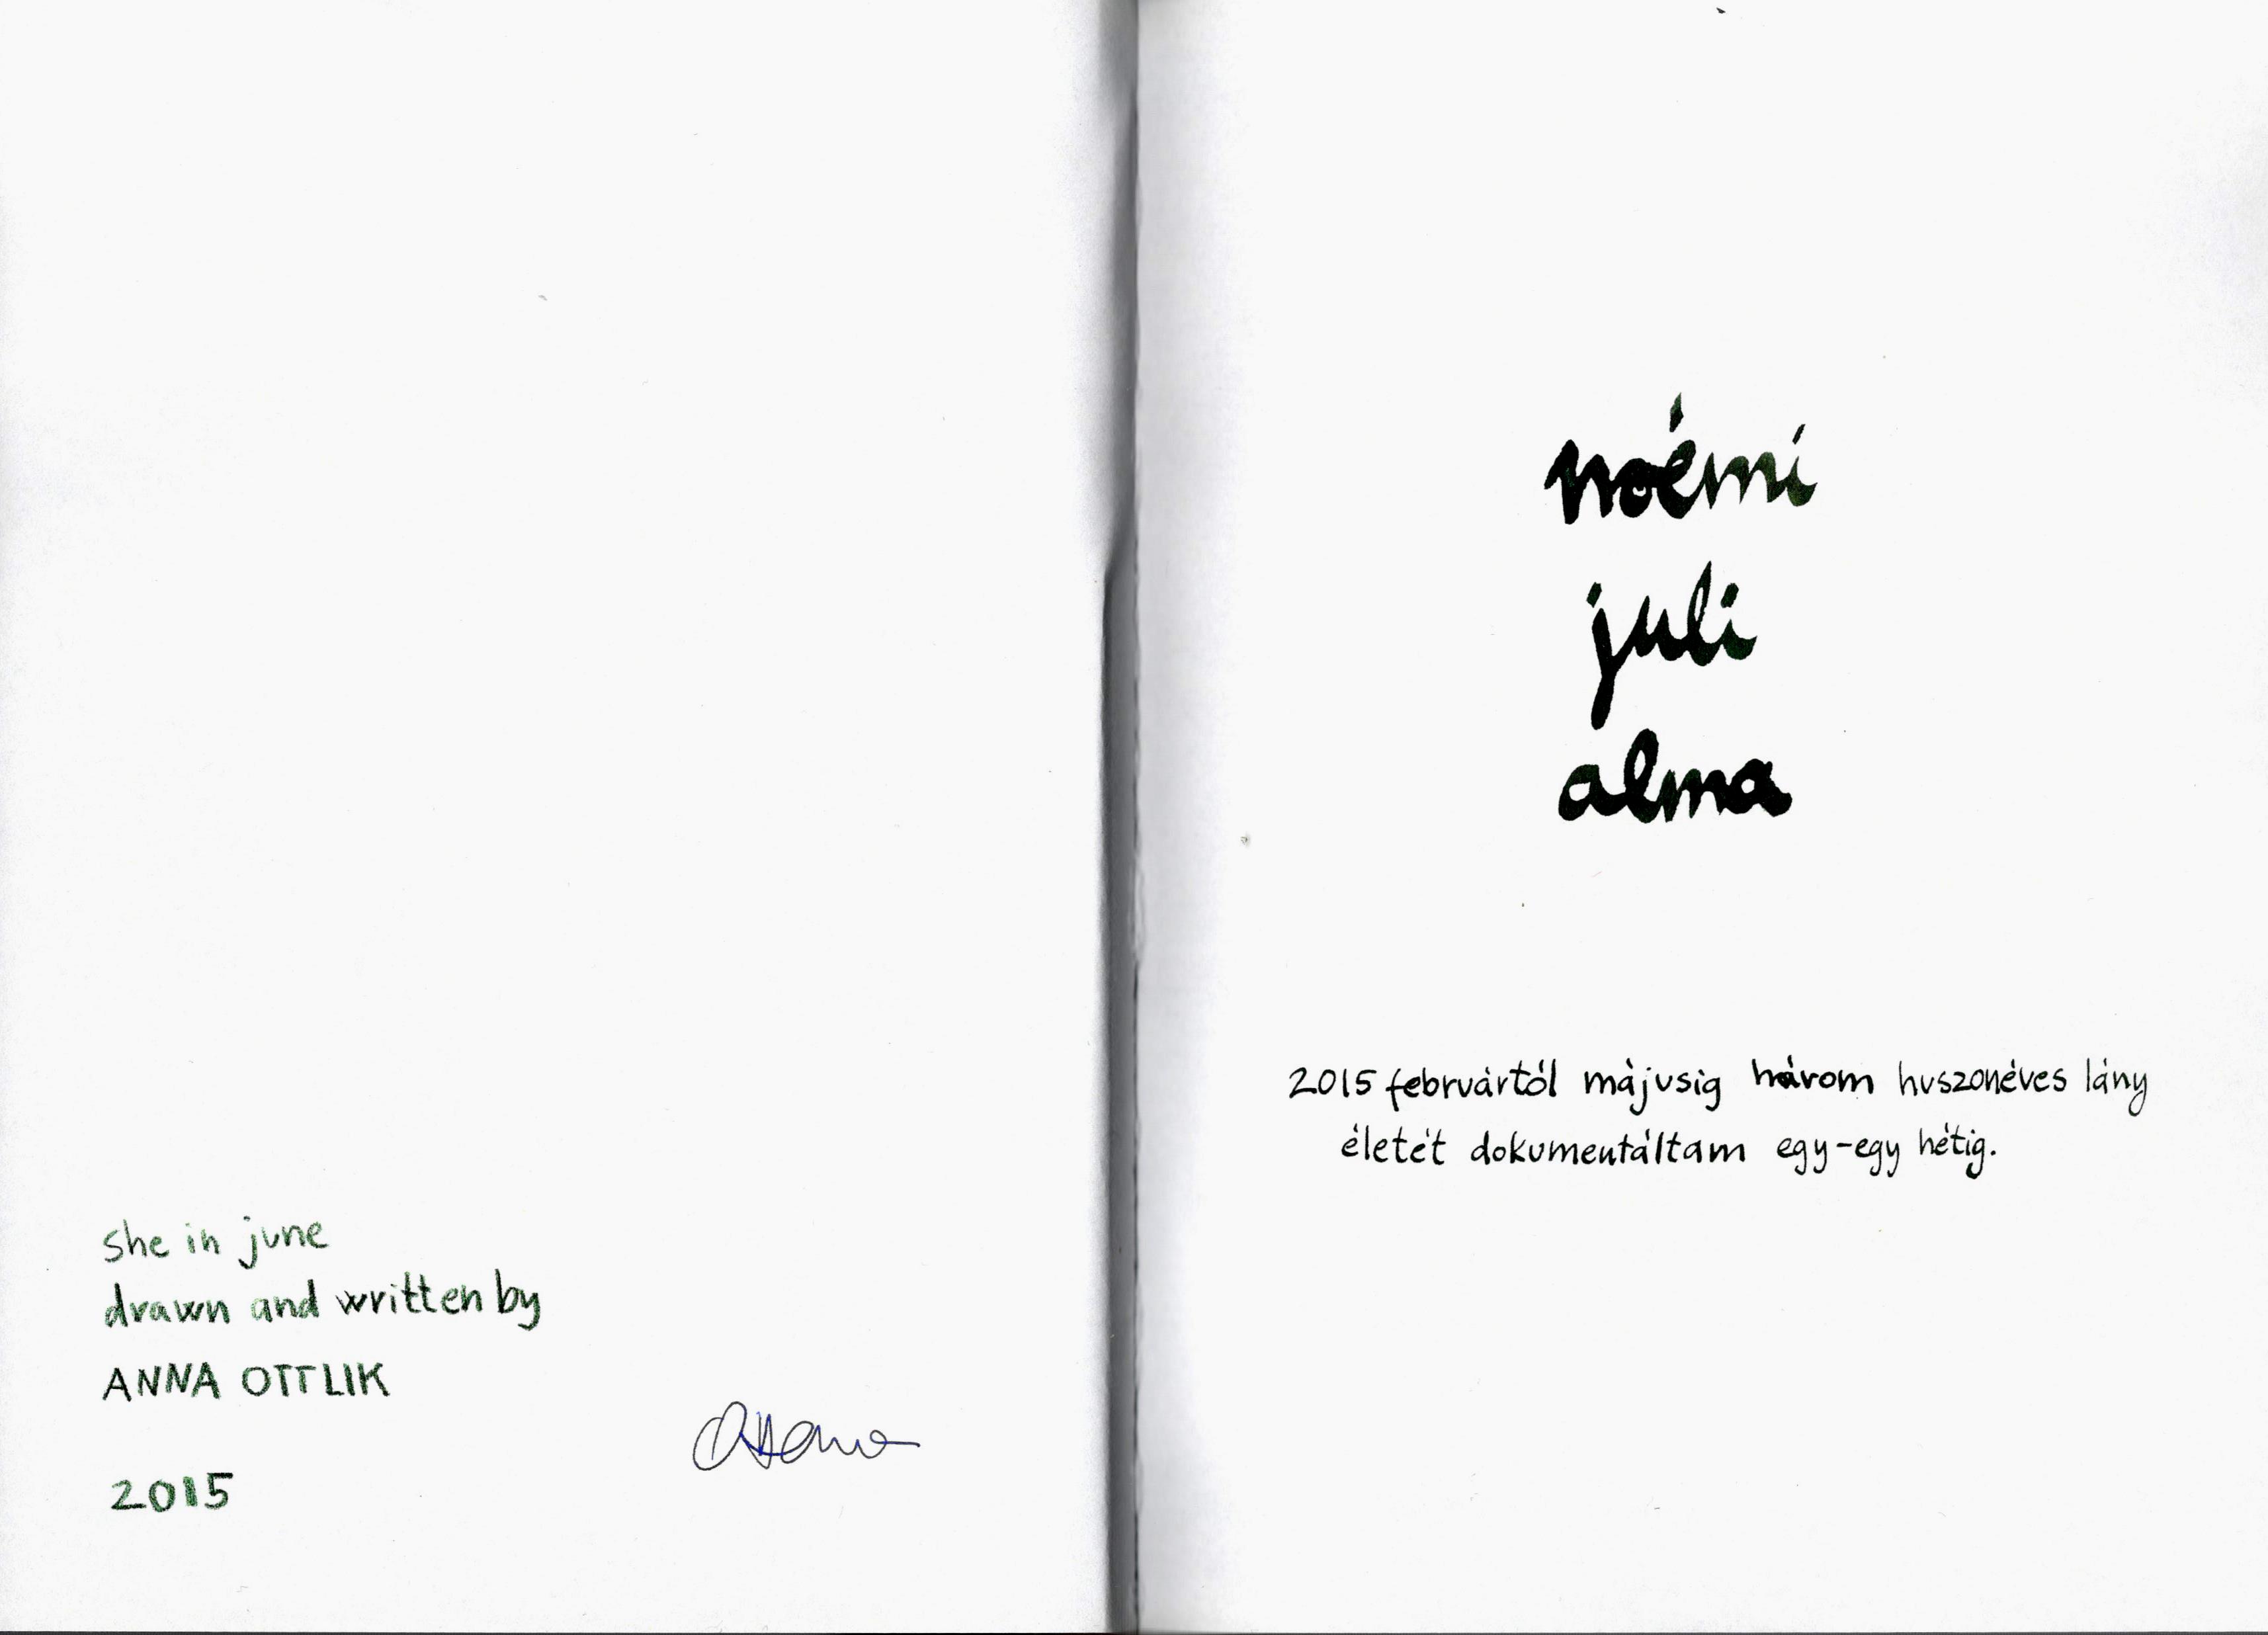 she in june
drawn and written by
ANNA OTTLIK
2015
noémi
juli
alma
2015 februártól májusig három huszonéves lány
életét dokumentáltam egy-egy hétig.